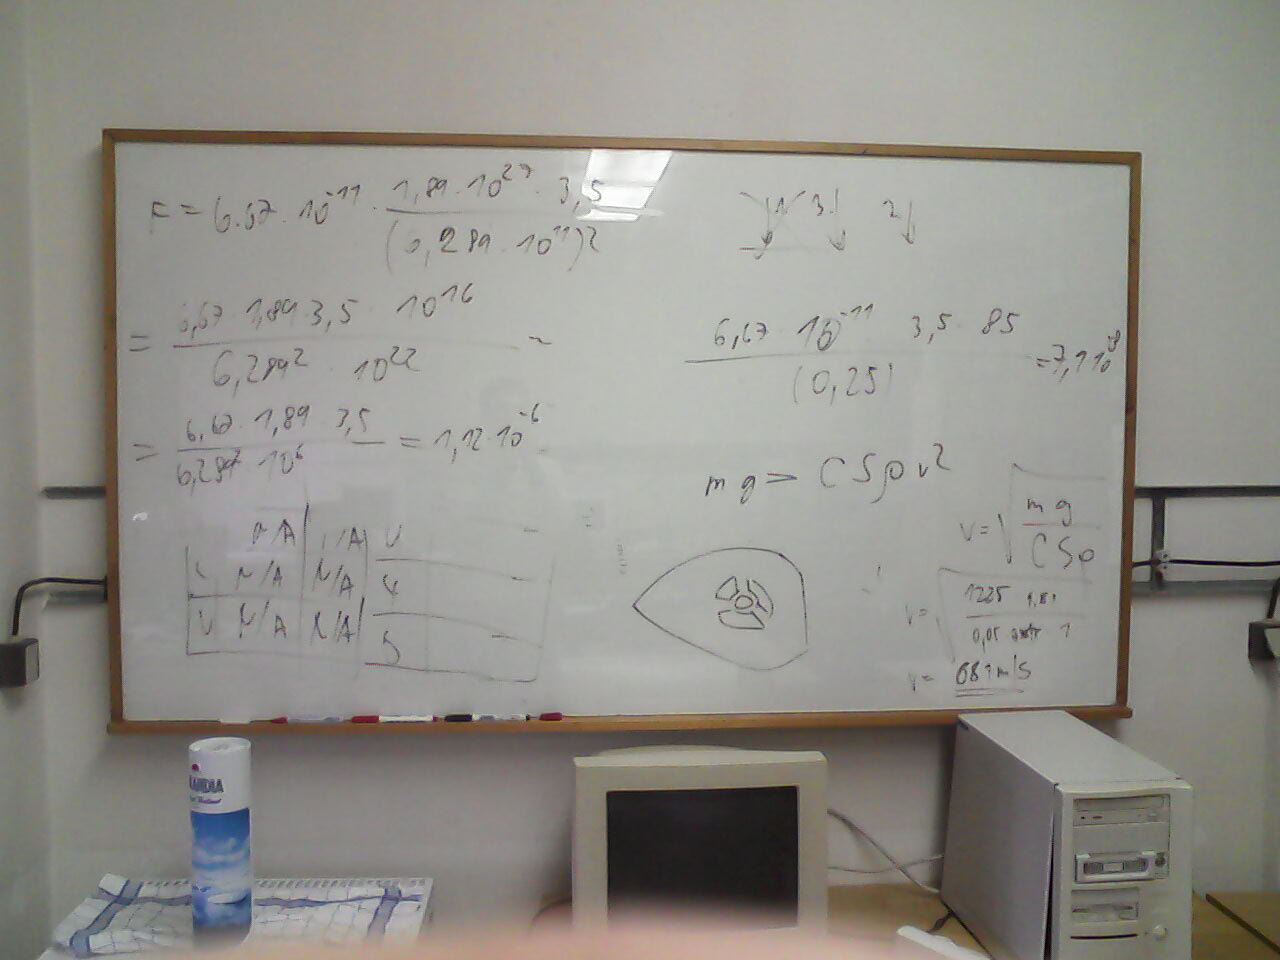 F = 6.67 · 10⁻¹¹ · 1,89 · 10²⁷ · 3,5 / (6,289 · 10¹¹)²
= 6,67 · 1,89 · 3,5 · 10¹⁶ / 6,289² · 10²² =
= 6,67 · 1,89 · 3,5 / 6,289² · 10⁶ = 1,12 · 10⁻⁶
N/A
N/A N/A 4
N/A N/A 5
3. 2
6,67 · 10⁻¹¹ 3,5 · 85 / (0,25) = 7,9 10⁻⁸
mg = CSρv²
v = √ mg / CSρ
v = √ 1225 9,81 / 0,05 1
v = 681 m/s